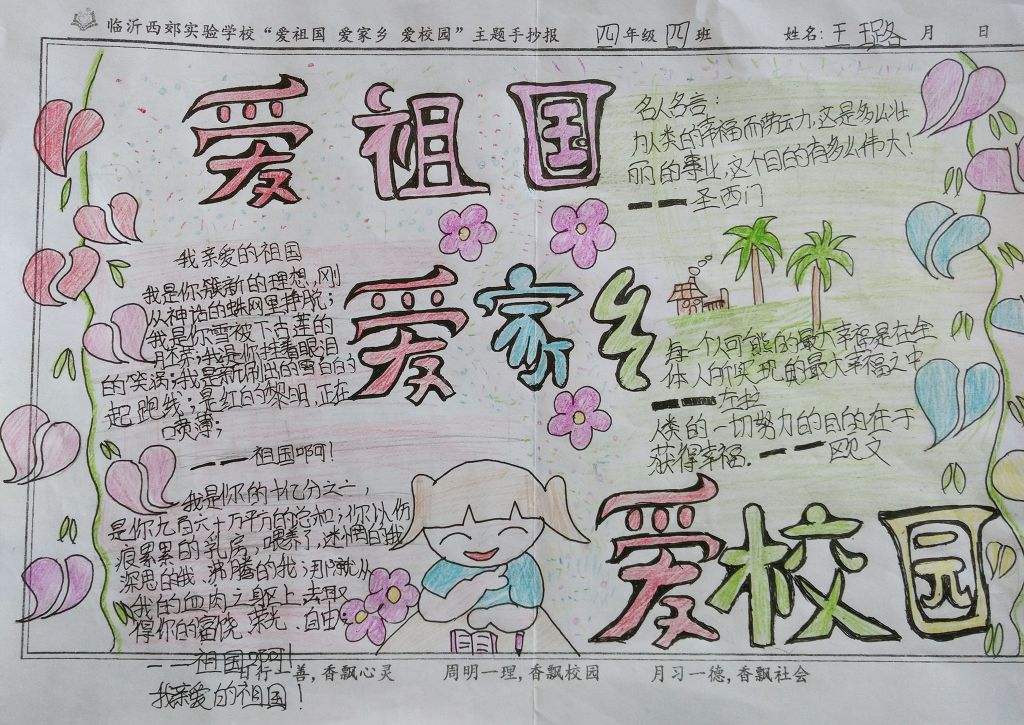 临沂西郊实验学校“爱祖国 爱家乡 爱校园”主题手抄报 四年级四班 姓名:王璐 月 日
爱祖国
名人名言:
为人类的幸福而劳动,这是多么壮
丽的事业,这个目的有多么伟大!
———圣西门
我亲爱的祖国
我是你簇新的理想,刚
从神话的蛛网里挣脱;
我是你雪被下古莲的
胚芽;我是你挂着眼泪
的笑涡;我是新刷出的雪白的
起跑线;是红的黎明,正在
喷薄;
———祖国啊!
爱家乡
每一个人可能的最大幸福是在全
体人所实现的最大幸福之中
左拉
人类的一切努力的目的在于
获得幸福.——欧文
我是你的十亿分之一,
是你九百六十万平方的总和;你以伤
痕累累的乳房,喂养了,迷惘的我
深思的我,沸腾的我;那就从
我的血肉之躯上,去取
得你的富饶,荣光,自由;
———祖国啊!
我亲爱的祖国!
爱校园
日行一善,香飘心灵 周明一理,香飘校园 月习一德,香飘社会